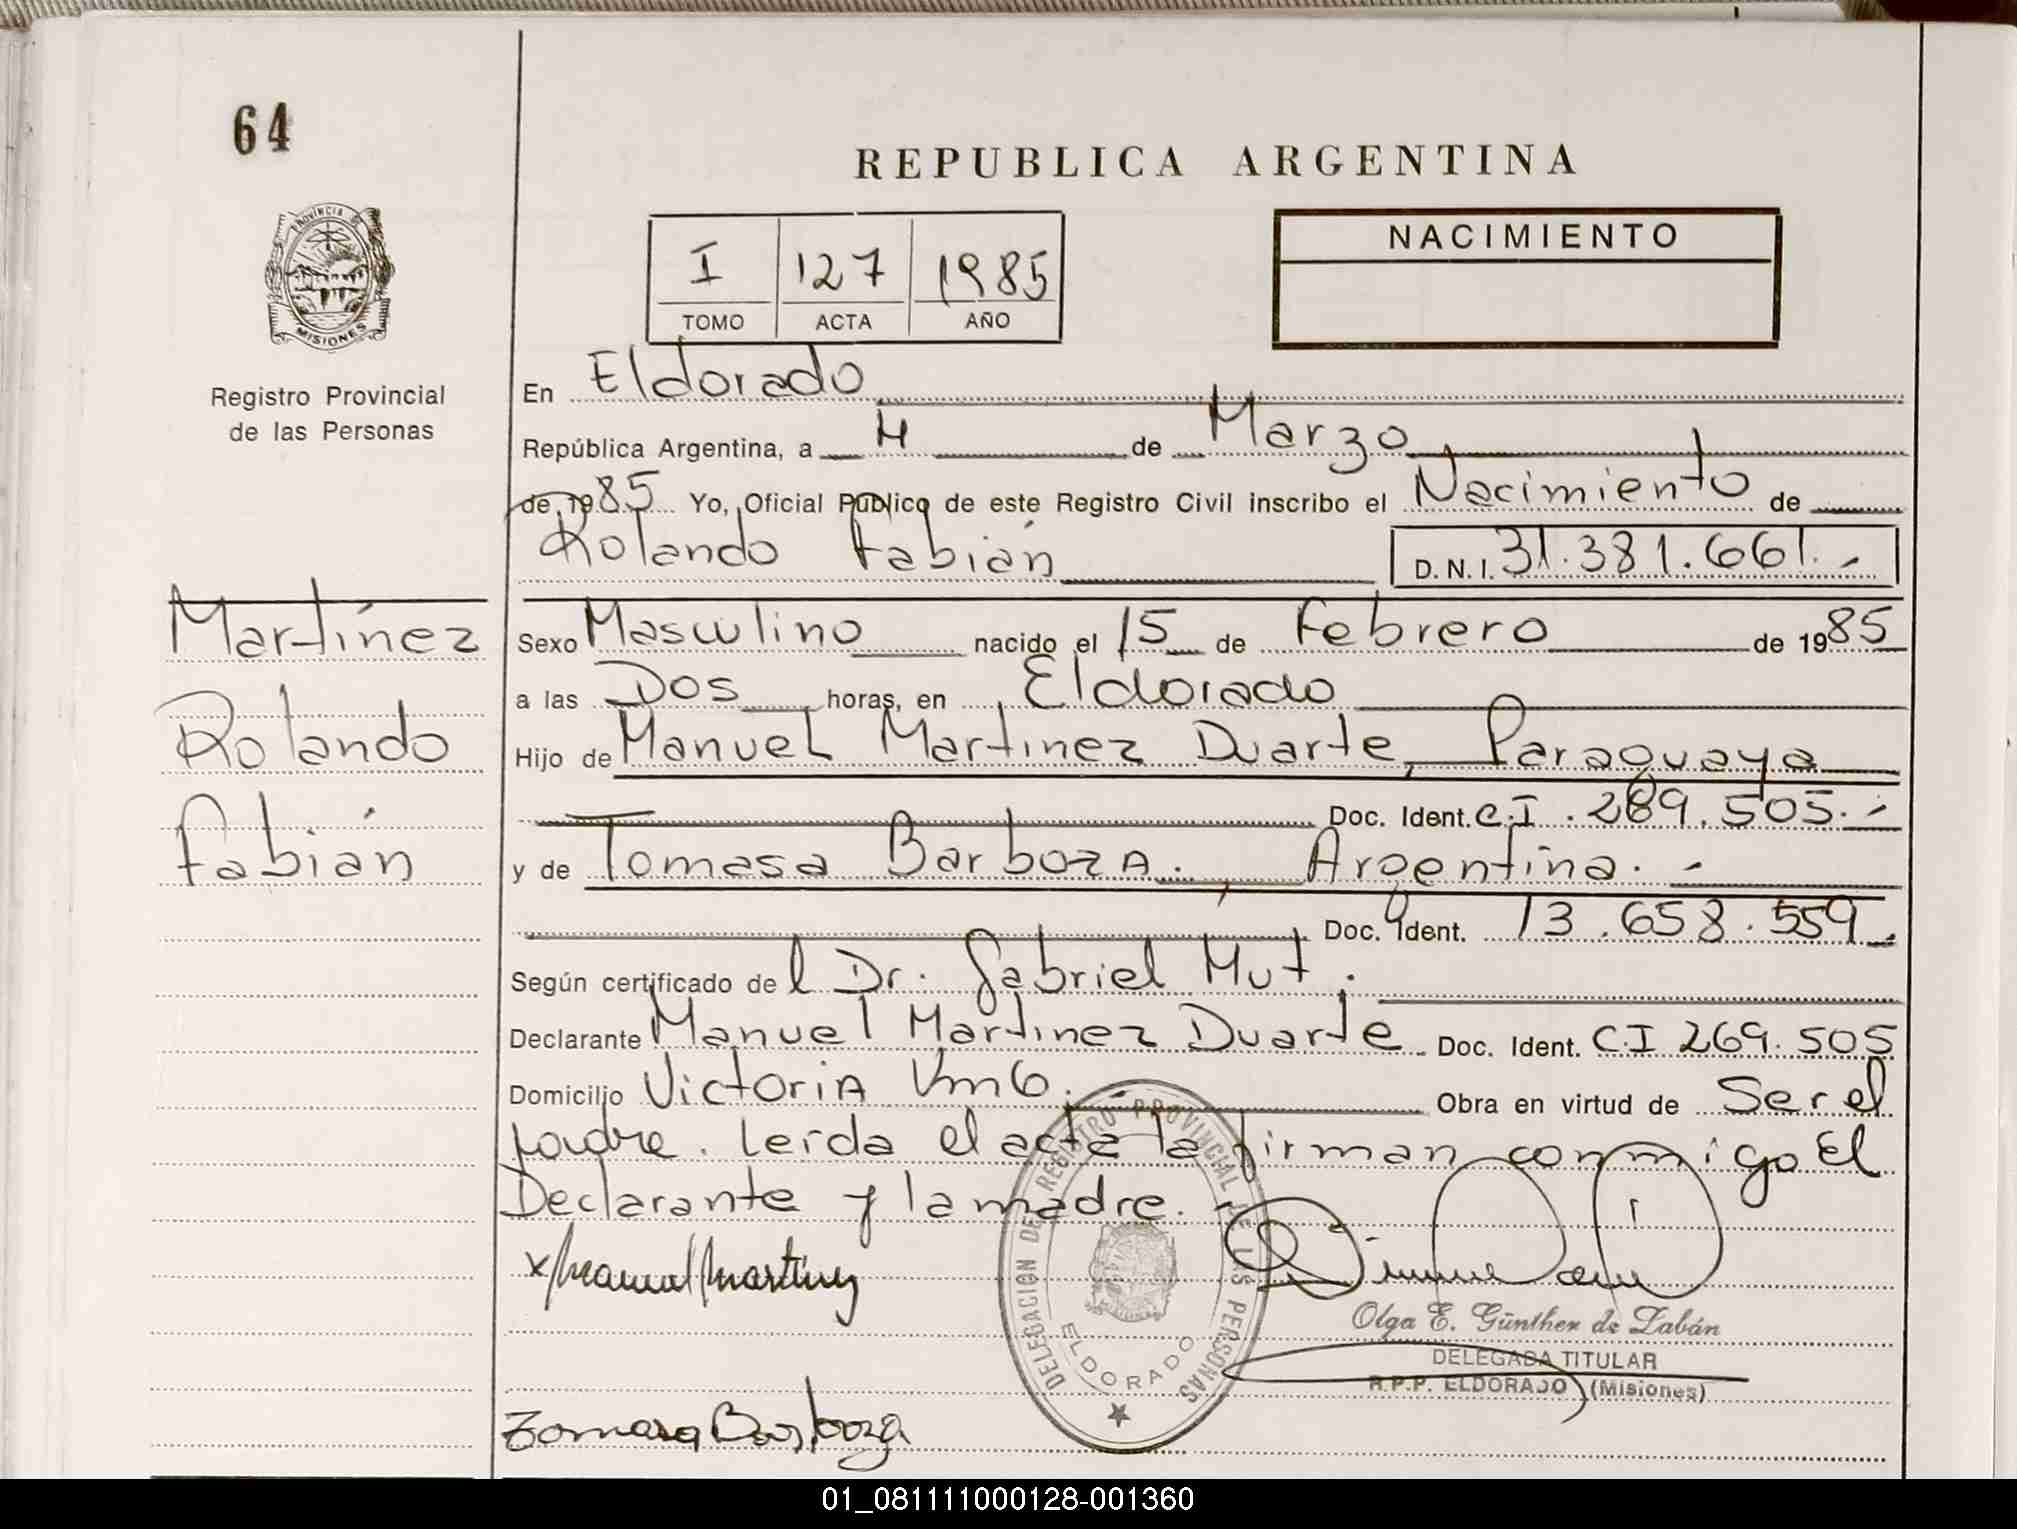 64
REPUBLICA ARGENTINA
PROVINCIA DE
MISIONES
Registro Provincial
de las Personas
I 127 1985
TOMO ACTA AÑO
NACIMIENTO
En Eldorado
República Argentina, a 4 de Marzo
de 1985 Yo, Oficial Público de este Registro Civil inscribo el Nacimiento de
Rolando Fabián D.N.I. 31.381.661.-
Martínez
Rolando
Fabián
Sexo Masculino nacido el 15 de Febrero de 1985
a las Dos horas, en Eldorado
Hijo de Manuel Martinez Duarte, Paraguaya
Doc. Ident. C.I. 269.505.-
y de Tomasa Barboza., Argentina.-
Doc. Ident. 13.658.559.
Según certificado de l Dr. Gabriel Mut.
Declarante Manuel Martinez Duarte Doc. Ident. CI 269.505
Domicilio Victoria Km6.- Obra en virtud de Ser el
padre. Leida el acta la firman conmigo El
Declarante y la madre.-
x Manuel Martinez
DELEGACION DE REGISTRO PROVINCIAL DE LAS PERSONAS
ELDORADO
Olga E. Günther de Zabán
DELEGADA TITULAR
R.P.P. ELDORADO (Misiones)
Tomasa Barboza
01_081111000128-001360